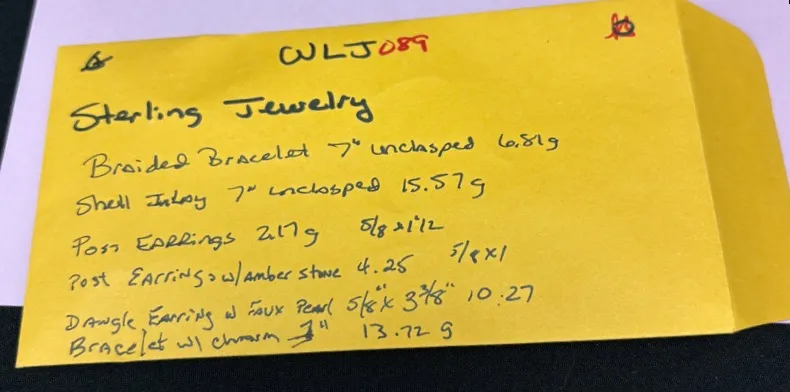 WLJ089
Sterling Jewelry
Braided Bracelet 7" unclasped 6.81g
Shell Inlay 7" unclasped 15.57g
Post EARRINGS 2.17g 5/8 x 1 1/2
Post EARRINGS w/Amber stone 4.25 5/8 x 1
DANGLE EARRING W FAUX PEARL 5/8" x 3 3/8" 10.27
Bracelet w/ charm 7" 13.72 g